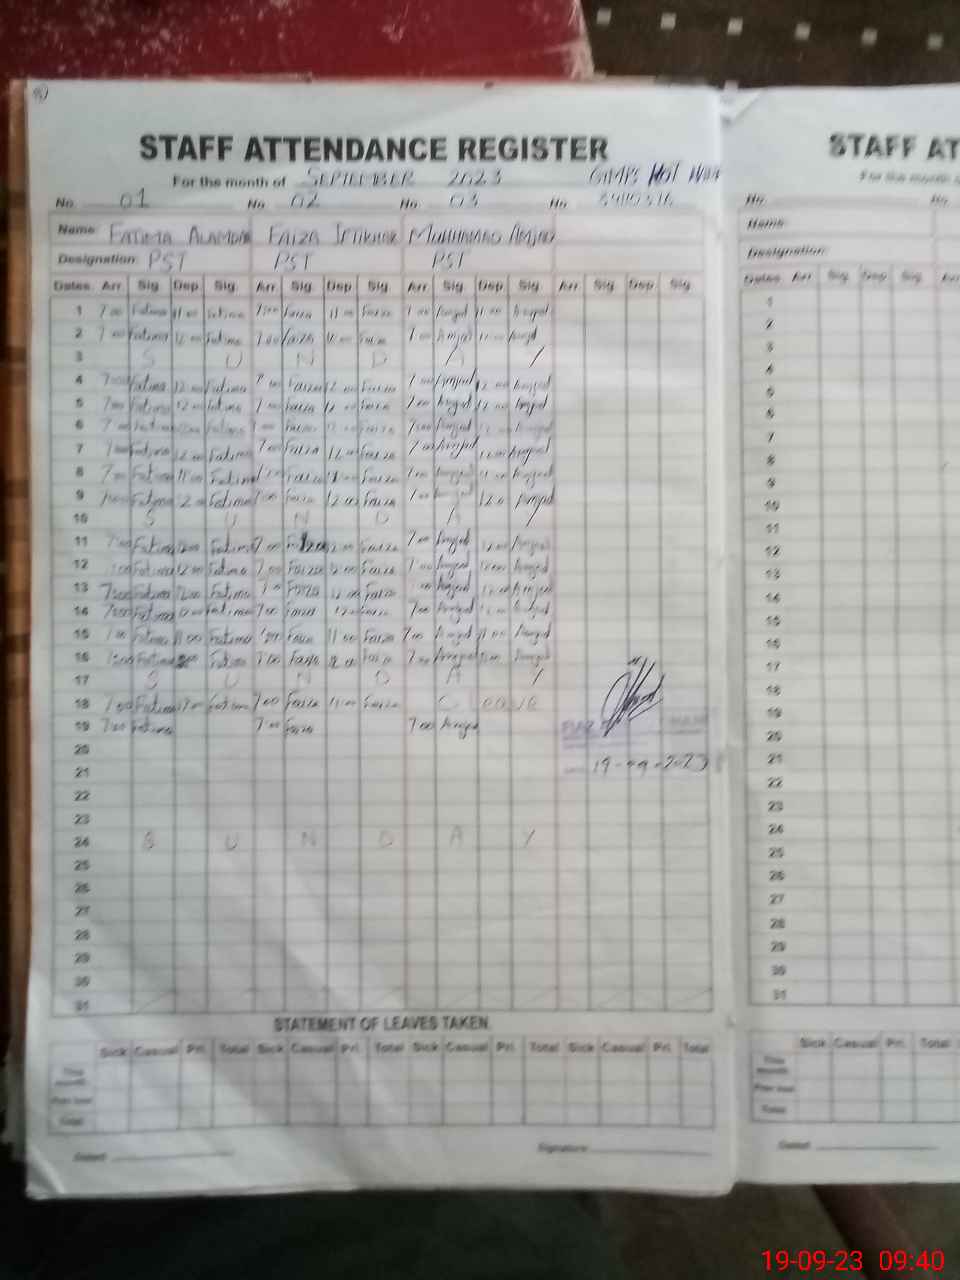 STAFF ATTENDANCE REGISTER
For the month of SEPTEMBER 2023 GMPS
No. 01 No. 02 No. 03 No.
Name: FATIMA FAIZA IFTIKHAR MUHAMMAD AMJAD
Designation: PST PST PST
Dates Arr. Sig. Dep. Sig. Arr. Sig. Dep. Sig. Arr. Sig. Dep. Sig. Arr. Sig. Dep. Sig.
1 7.00 Fatima 11.00 Fatima 7.00 Faiza 11.00 Faiza 7.00 Amjad 11.00 Amjad
2 7.00 Fatima Fatima 7.00 Faiza Faiza 7.00 Amjad Amjad
3 S U N D A Y
4 7.00 Fatima 12.00 Fatima 7.00 Faiza 12.00 Faiza 7.00 Amjad 12.00 Amjad
5 7.00 Fatima 12.00 Fatima 7.00 Faiza 12.00 Faiza 7.00 Amjad 12.00 Amjad
6 7.00 Fatima Fatima 7.00 Faiza 12.00 Faiza 7.00 Amjad 12.00 Amjad
7 7.00 Fatima 12.00 Fatima 7.00 Faiza 12.00 Faiza 7.00 Amjad 12.00 Amjad
8 7.00 Fatima 11.00 Fatima 7.00 Faiza 11.00 Faiza 7.00 Amjad 11.00 Amjad
9 7.00 Fatima 12.00 Fatima 7.00 Faiza 12.00 Faiza 7.00 Amjad 12.00 Amjad
10 S U N D A Y
11 7.00 Fatima 12.00 Fatima 7.00 Faiza 12.00 Faiza 7.00 Amjad 12.00 Amjad
12 7.00 Fatima 12.00 Fatima 7.00 Faiza 12.00 Faiza 7.00 Amjad 12.00 Amjad
13 7.00 Fatima 12.00 Fatima 7.00 Faiza 12.00 Faiza Amjad 12.00 Amjad
14 7.00 Fatima Fatima 7.00 Faiza Faiza 7.00 Amjad Amjad
15 7.00 Fatima 11.00 Fatima 7.00 Faiza 11.00 Faiza 7.00 Amjad 11.00 Amjad
16 7.00 Fatima Fatima 7.00 Faiza 12.00 Faiza 7.00 Amjad Amjad
17 S U N D A Y
18 7.00 Fatima Fatima 7.00 Faiza Faiza C Leave
19 7.00 Fatima 7.00 Faiza 7.00 Amjad
20
21 19-09-2023
22
23
24 S U N D A Y
25
26
27
28
29
30
31
STATEMENT OF LEAVES TAKEN
Sick Casual Pri. Total Sick Casual Pri. Total Sick Casual Pri. Total Sick Casual Pri. Total
This month
Total
Dated Signature
STAFF AT
For the month
No. No.
Name:
Designation:
Dates Arr. Sig. Dep. Sig.
1
2
3
4
5
6
7
8
9
10
11
12
13
14
15
16
17
18
19
20
21
22
23
24
25
26
27
28
29
30
31
Sick Casual Pri. Total
This month
Total
Dated
19-09-23 09:40